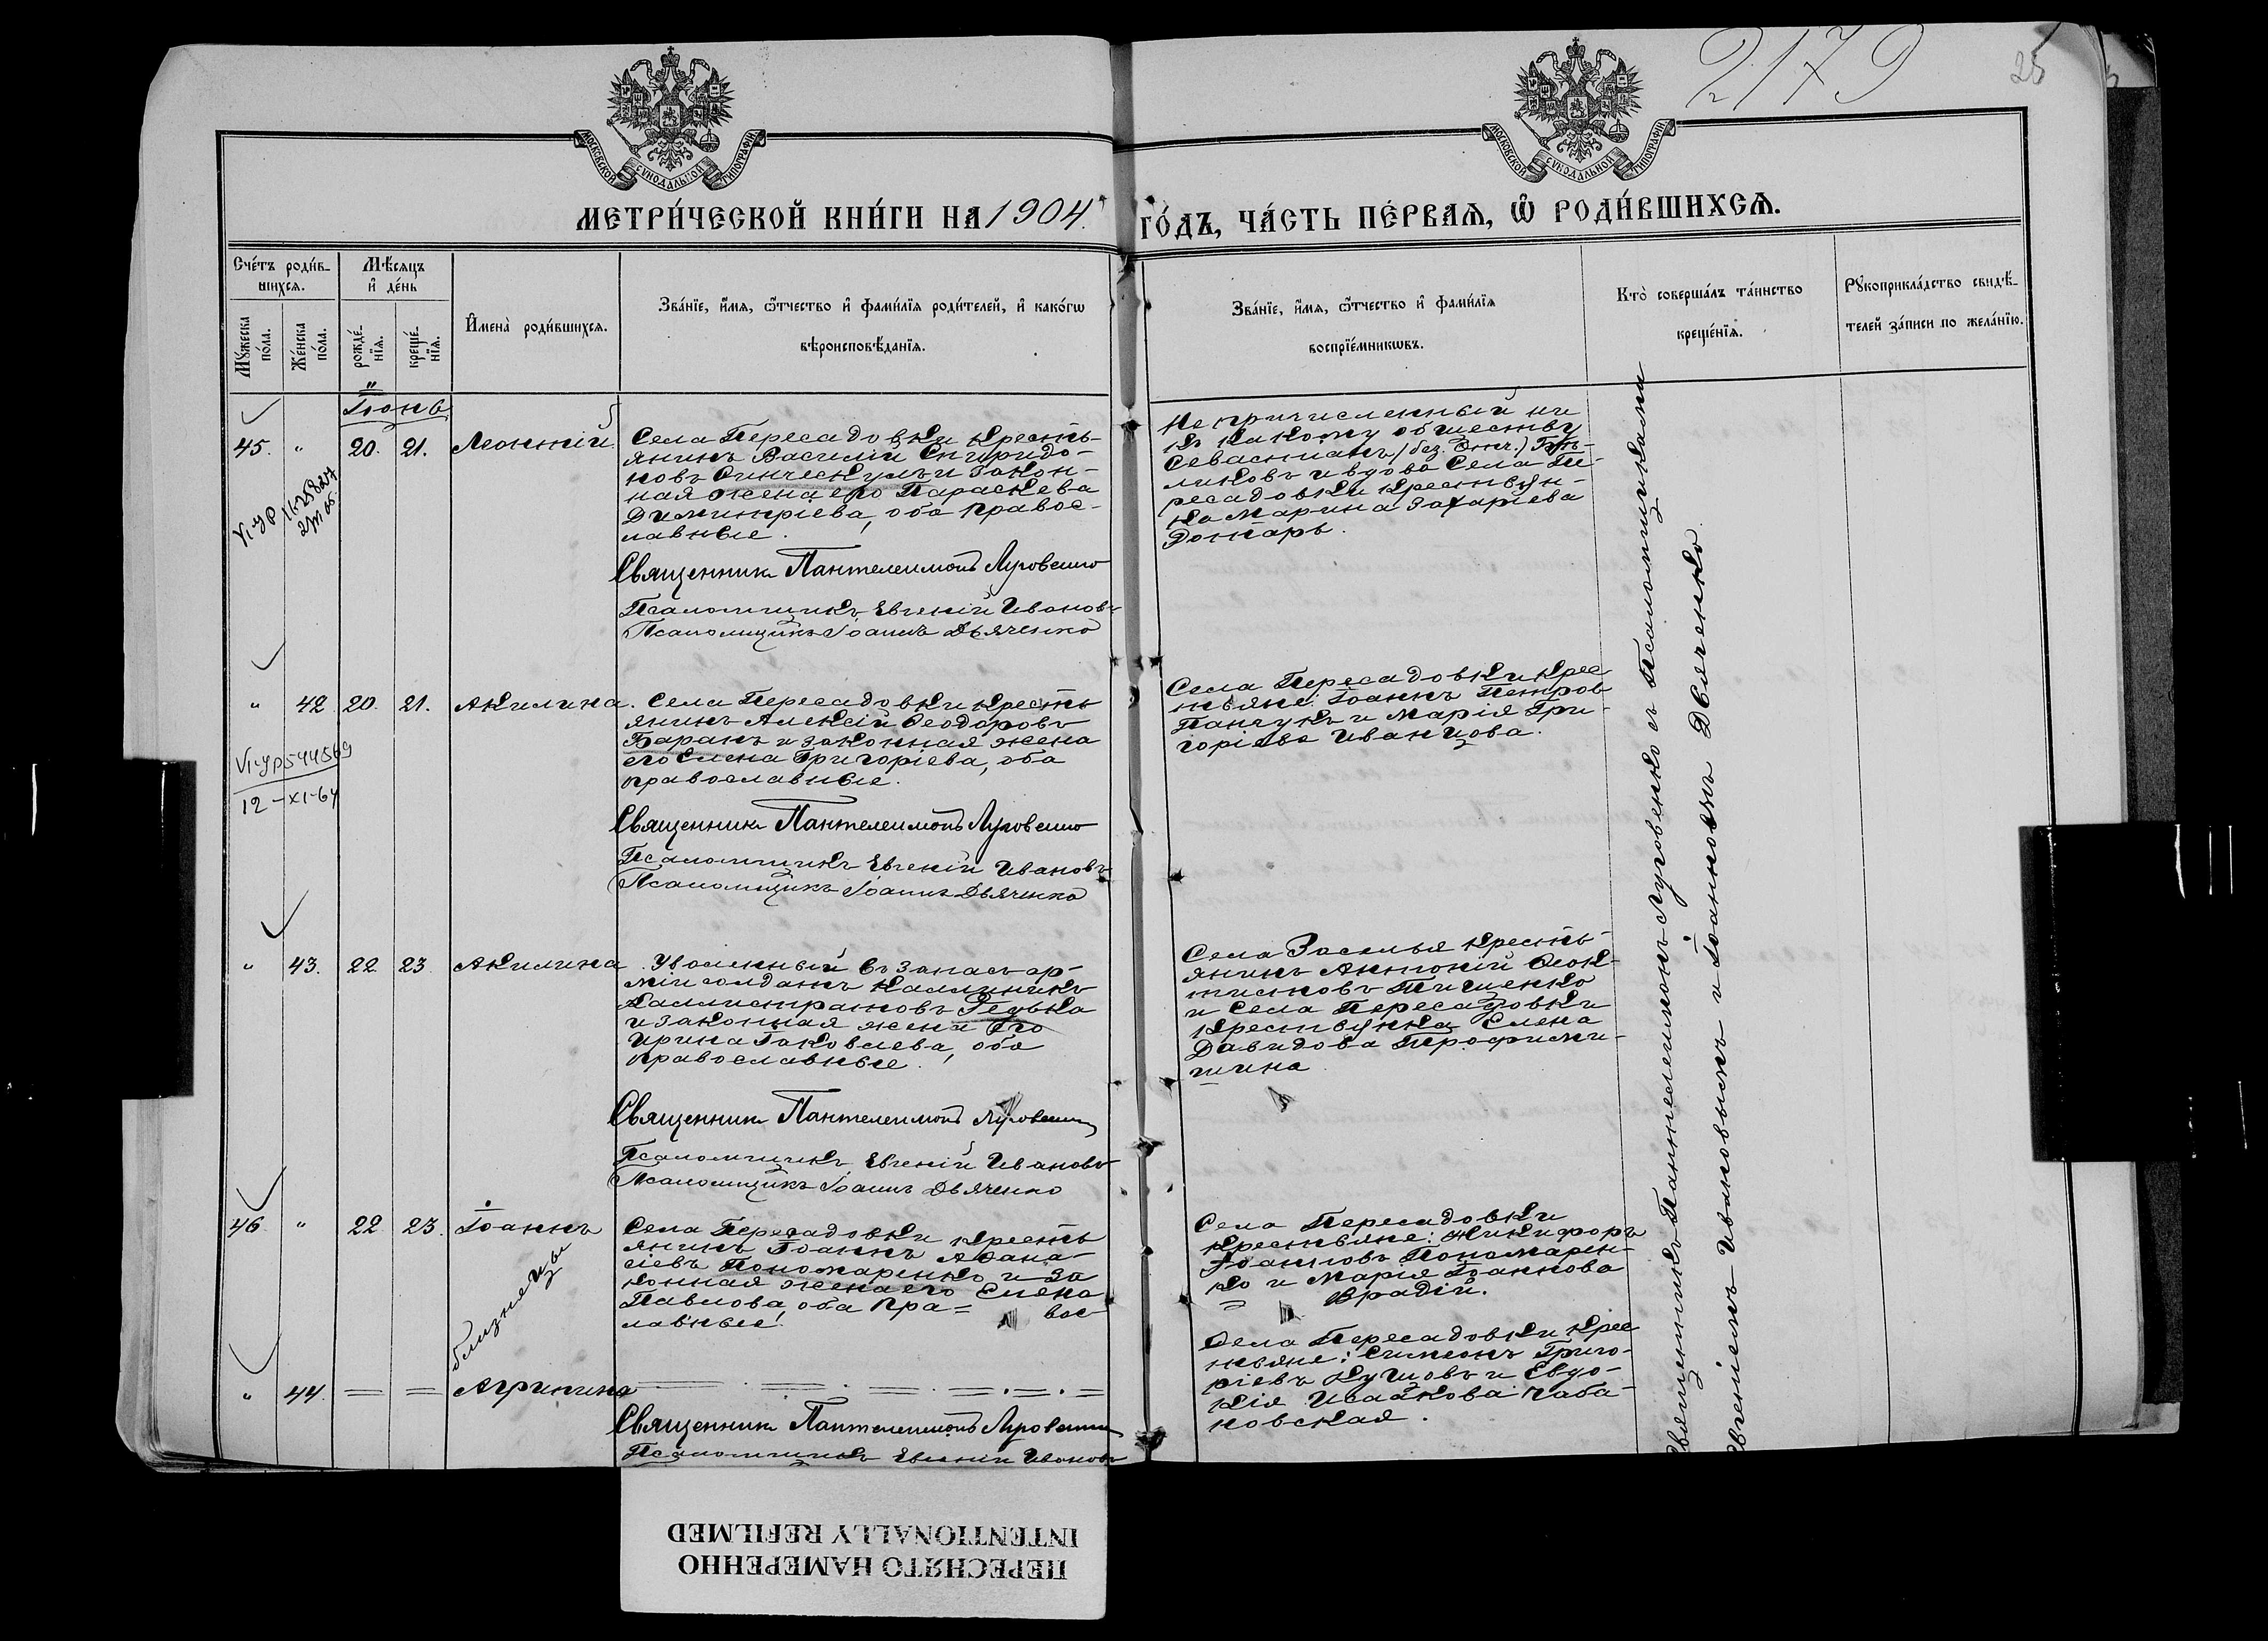 2179
25
МОСКОВСКОЙ СѴНОДАЛЬНОЙ ТИПОГРАФІИ
МОСКОВСКОЙ СѴНОДАЛЬНОЙ ТИПОГРАФІИ
МЕТРИ́ЧЕСКОЙ КНИ́ГИ НА 1904 ГО́ДЪ, ЧА́СТЬ ПЕ́РВАѦ, Ѡ҆ РОДИ́ВШИХСѦ.
Сче́тъ роди́в-
шихсѧ.
Мѣ́сѧцъ
и҆ де́нь
Мꙋ́жеска
по́ла.
Же́нска
по́ла.
рожде́-
нїѧ.
креще́-
нїѧ.
И҆мена̀ роди́вшихсѧ.
Зва́нїе, и҆́мѧ, ѻ҆́тчество и҆ фами́лїѧ роди́телей, и҆ како́гѡ
вѣроисповѣ́данїѧ.
Зва́нїе, и҆́мѧ, ѻ҆́тчество и҆ фами́лїѧ
воспрїе́мникѡвъ.
Кто̀ соверша́лъ та́инство
креще́нїѧ.
Рꙋкоприкла́дство свидѣ́-
телей за́писи по жела́нїю.
Іюнь
45. " 20. 21. Леонтій
Села Пересадовки кресть-
янинъ Василій Спиридо-
новъ и закон-
ная жена его Параскева
Димитріева, оба правос-
лавные.
Священникъ Пантелеимонъ Луговенко
Псаломщикъ Евгеній Ивановъ
Псаломщикъ Іоаннъ Дьяченко
Не причисленный ни
къ какому обществу
Севастіанъ (без. Отч.)
и вдова Села Пе-
ресадовки крестьян-
ка Марина Захаріева
VI-УР
" 42. 20. 21. Акилина.
Села Пересадовки кресть
янинъ Алексій Ѳеодоровъ
Баранъ и законная жена
его Елена Григоріева, оба
православные.
Священникъ Пантелеимонъ Луговенко
Псаломщикъ Евгеній Ивановъ
Псаломщикъ Іоаннъ Дьяченко
Села Пересадовки крес
тьяне: Іоаннъ Петров
Панчукъ и Марія Гри-
горіева Иванцова.
VI-УР 544569
12-XI-64
" 43. 22 23 Акилина
Уволенный въ запасъ ар-
міи солдатъ Каллиникъ
Каллистратовъ Редька
и законная жена его
Ирина Іаковлева, оба
православные.
Священникъ Пантелеимонъ Луговенко
Псаломщикъ Евгеній Ивановъ
Псаломщикъ Іоаннъ Дьяченко
Села Заселья кресть-
янинъ Антоній Ѳеок-
тистовъ Тищенко
и Села Пересадовки
крестьянка Елена
Давидова Трофими-
шина
46. " 22 23. Іоаннъ
близнецы
Села Пересадовки кресть
янинъ Іоаннъ Аѳана-
сіевъ Пономаренко и за
конная жена его Елена
Павлова, оба пра= вос-
лавные.
Села Пересадовки
крестьяне: Никифоръ
Пономарен-
ко и Марія Іоаннова
Врадій.
" 44. = = Агрипина
Священникъ Пантелеимонъ Луговенко
Псаломщикъ Евгеній Ивановъ
Села Пересадовки крес
тьяне: Симеонъ Григо-
ріевъ Кущовъ и Евдо-
кія Исаакова Чаба-
новская.
Священникъ Пантелеимонъ Луговенко съ Псаломщиками
Евгеніемъ Ивановымъ и Іоанномъ Дьяченко.
ПЕРЕСНЯТО НАМЕРЕННО
INTENTIONALLY REFILMED